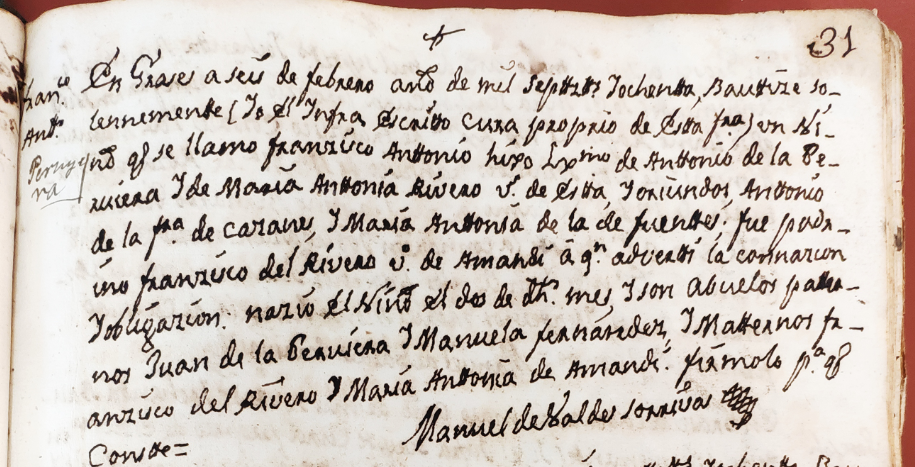 31
Fran.co
Antt.o
En Grases a seis de febrero año de mil Septtztts Iochentta, Bauttize so-
lennemente (Io El Infra Escritto Cura proprio de Estta fra.) vn Ni-
no q se llamo franzisco Anttonio hixo Lxmo de Anttonio de la Be-
rruiera I de Maria Anttonia Rivero v.s de Estta, I oriundos Anttonio
de la fra de Cazanes, I Maria Anttonia de la de fuentes; fue padr-
ino franzisco del Rivero v.o de Amandi â q.n adverttí la cognazion
I obligazion. nazio El Niño El dos de dh.o mes I son Abuelos patter-
nos Juan de la Berruiera I Manuela fernández, I Matternos fr-
anzisco del Rivero I Maria Anttonia de Amandi. firmolo p.a q
Consste=
Manuel de Valdes Sorrivas